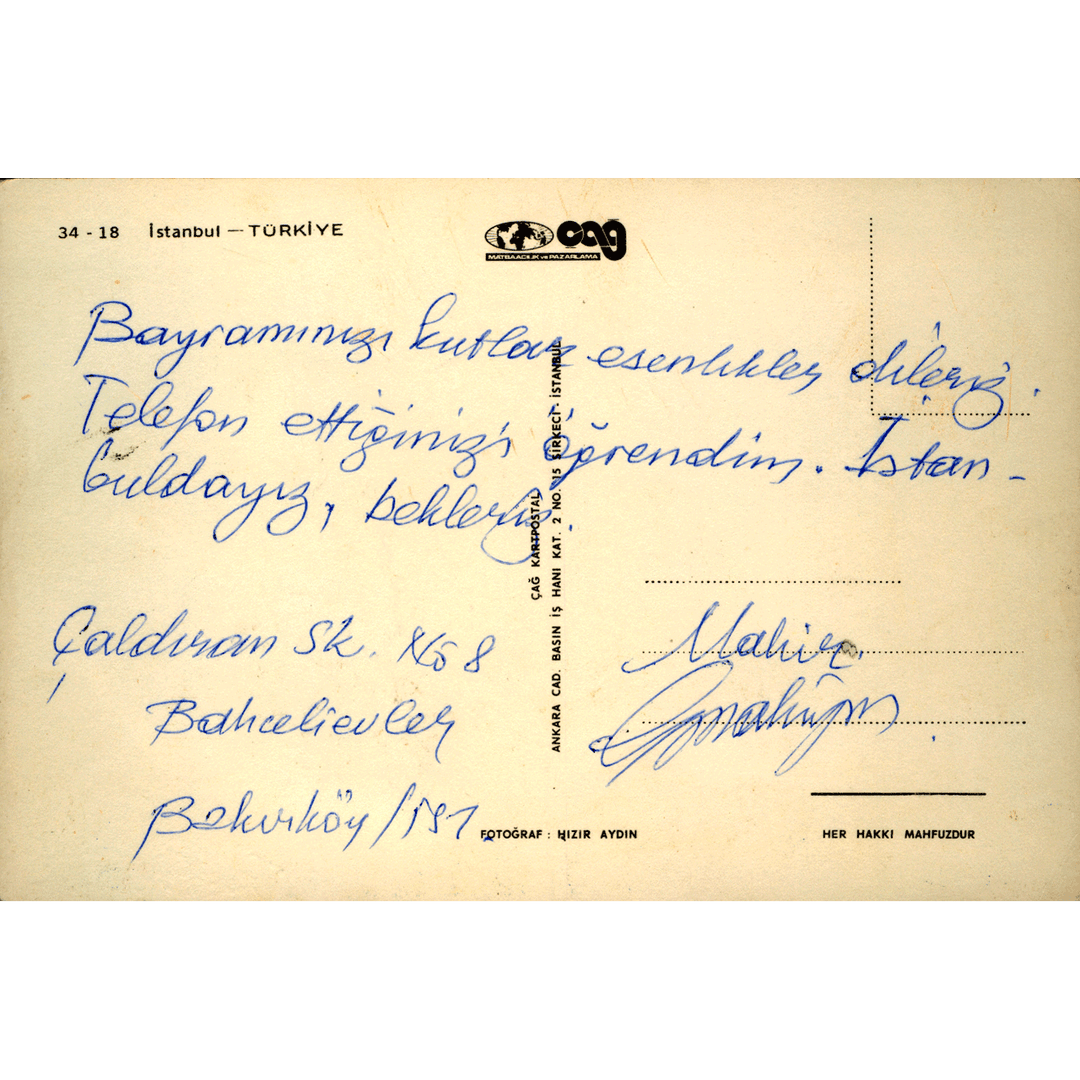 34 - 18 İstanbul — TÜRKİYE
çağ
MATBAACILIK ve PAZARLAMA
Bayramınızı kutlar esenlikler dileriz.
Telefon ettiğinizi öğrendim. İstan-
buldayız, bekleriz.
Çaldıran Sk. No 8
Bahçelievler
Bakırköy / İST
Mahir
ÇAĞ KARTPOSTAL
ANKARA CAD. BASIN İŞ HANI KAT. 2 NO. 15 SİRKECİ - İSTANBUL
FOTOĞRAF : HIZIR AYDIN
HER HAKKI MAHFUZDUR